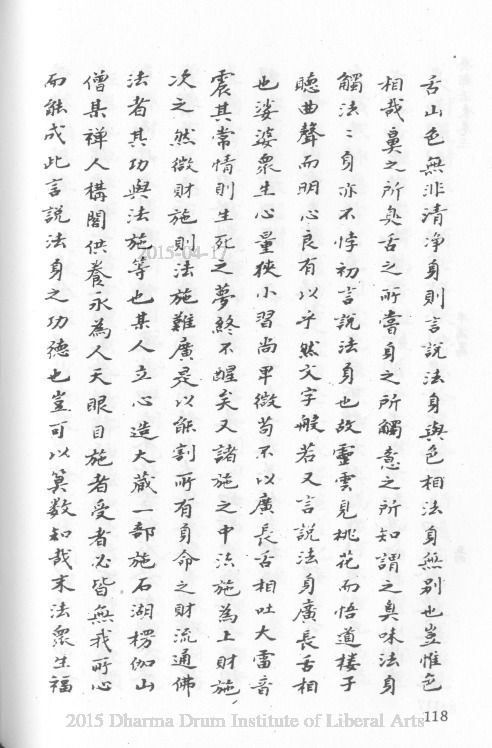 舌山色無非清净身則言說法身與色相法身無别也豈惟色
相哉鼻之所臭舌之所嘗身之所觸意之所知謂之臭味法身
觸法〻身亦不悖初言說法身也故靈雲見桃花而悟道樓子
聴曲聲而明心良有以乎然文字般若又言說法身廣長舌相
也娑婆衆生心量狹小習尚卑微苟不以廣長舌相吐大雷音
震其常情則生死之夢終不醒矣又諸施之中法施為上財施
次之然微財施則法施難廣是以能割所有身命之財流通佛
法者其功與法施等也某人立心造大藏一部施石湖楞伽山
僧某禅人構閣供養永為人天眼目施者受者必皆無我所心
而能成此言說法身之功德也豈可以筭数知哉末法衆生福
118
2015-04-17
2015 Dharma Drum Institute of Liberal Arts